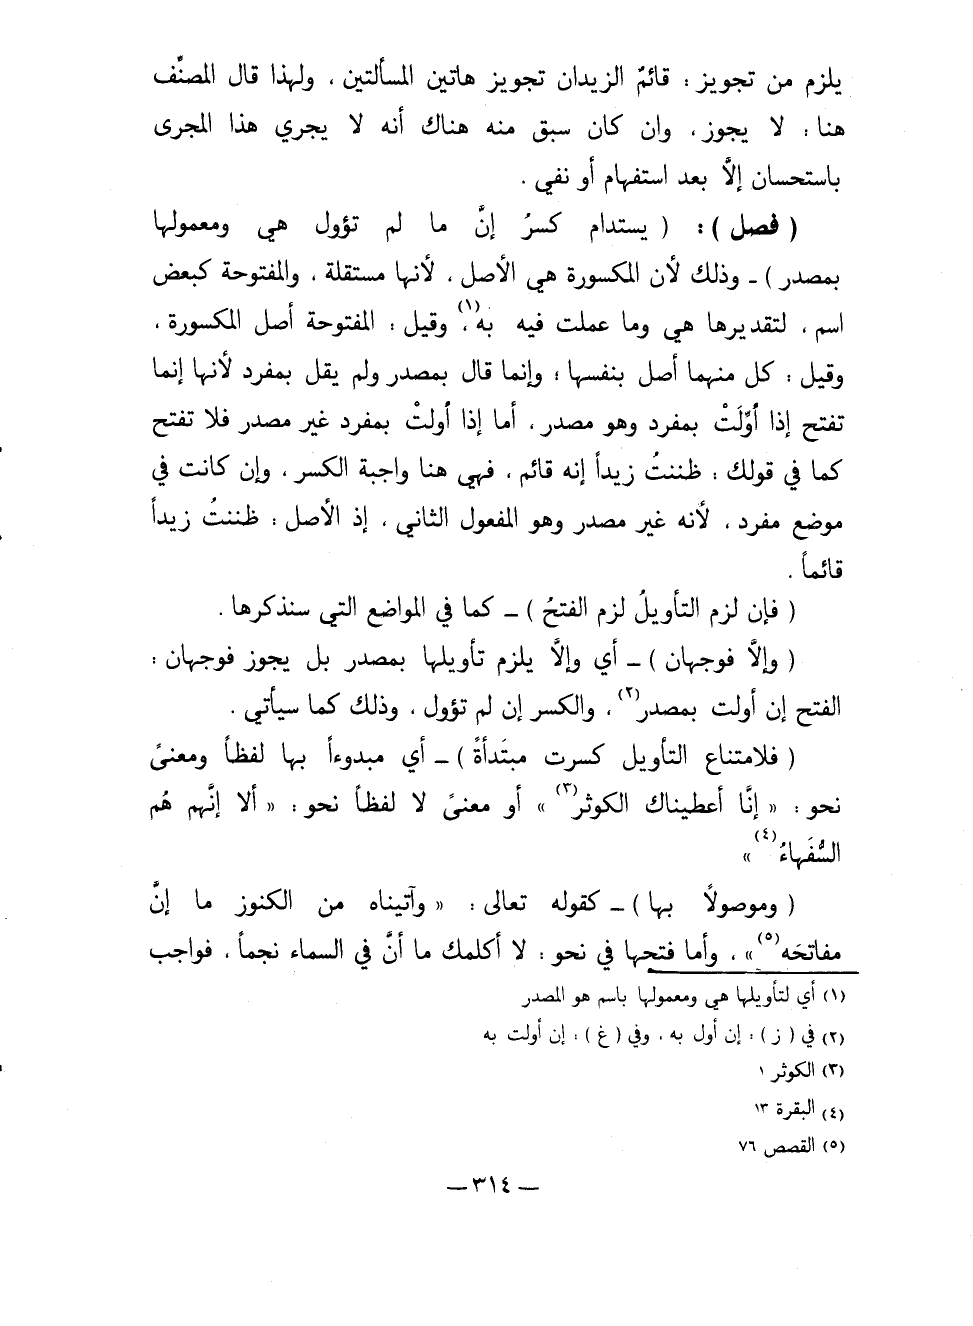 يلزم من تجويز : قائمٌ الزيدان تجويز هاتين المسألتين ، ولهذا قال المصنِّف
هنا : لا يجوز ، وان كان سبق منه هناك أنه لا يجري هذا المجرى
باستحسان إلاَّ بعد استفهام أو نفي .
( فصل ) : ( يستدام كسرُ إنَّ ما لم تؤول هي ومعمولها
بمصدر ) ـ وذلك لأن المكسورة هي الأصل ، لأنها مستقلة ، والمفتوحة كبعض
اسم ، لتقديرها هي وما عملت فيه به(١) ، وقيل : المفتوحة أصل المكسورة ،
وقيل : كل منهما أصل بنفسها ؛ وإنما قال بمصدر ولم يقل بمفرد لأنها إنما
تفتح إذا أوِّلَتْ بمفرد وهو مصدر ، أما إذا أولتْ بمفرد غير مصدر فلا تفتح
كما في قولك : ظننتُ زيداً إنه قائم ، فهي هنا واجبة الكسر ، وإن كانت في
موضع مفرد ، لأنه غير مصدر وهو المفعول الثاني ، إذ الأصل : ظننتُ زيداً
قائماً .
( فإن لزم التأويلُ لزم الفتحُ ) ـ كما في المواضع التي سنذكرها .
( وإلاَّ فوجهان ) ـ أي وإلاَّ يلزم تأويلها بمصدر بل يجوز فوجهان :
الفتح إن أولت بمصدر(٢) ، والكسر إن لم تؤول ، وذلك كما سيأتي .
( فلامتناع التأويل كسرت مبتَدأةً ) ـ أي مبدوءاً بها لفظاً ومعنىً
نحو : « إنَّا أعطيناك الكوثر(٣) » أو معنىً لا لفظاً نحو : « ألا إنَّهم هُم
السُّفَهاءُ(٤) »
( وموصولاً بها ) ـ كقوله تعالى : « وآتيناه من الكنوز ما إنَّ
مفاتحَه(٥) » ، وأما فتحها في نحو : لا أكلمك ما أنَّ في السماء نجماً ، فواجب
(١) أي لتأويلها هي ومعمولها باسم هو المصدر
(٢) في ( ز ) : إن أول به ، وفي ( غ ) : إن أولت به
(٣) الكوثر ١
(٤) البقرة ١٣
(٥) القصص ٧٦
— ٣١٤ —